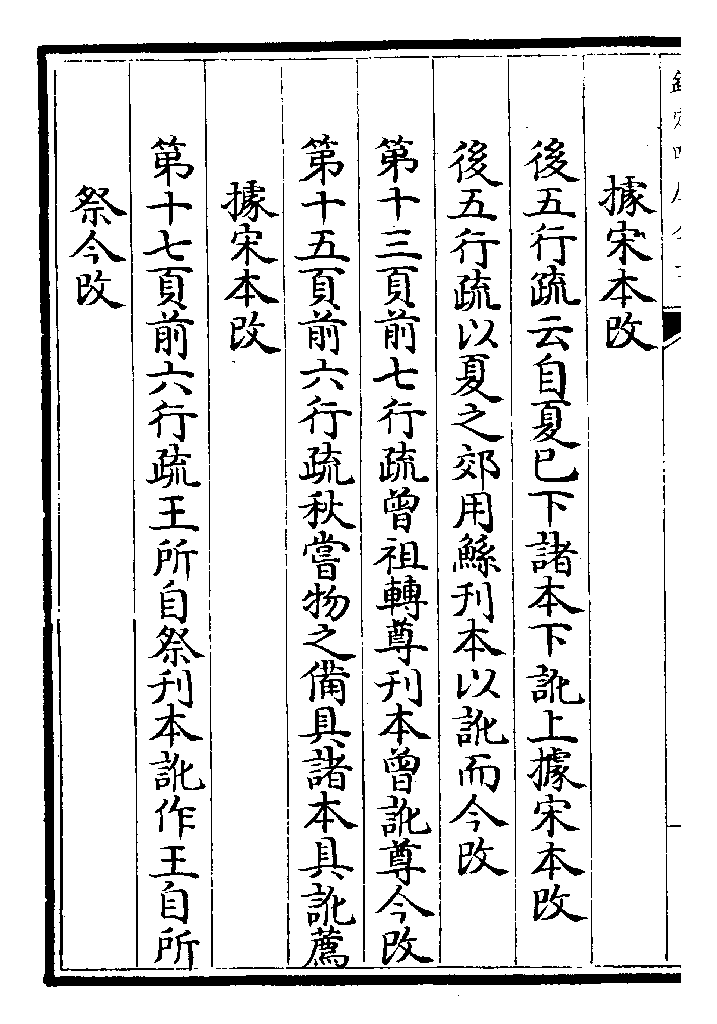 據宋本改
後五行疏云自夏已下諸本下訛上據宋本改
後五行疏以夏之郊用鯀刊本以訛而今改
第十三頁前七行疏曾祖轉尊刊本曾訛尊今改
第十五頁前六行疏秋嘗物之備具諸本具訛薦
據宋本改
第十七頁前六行疏王所自祭刊本訛作王自所
祭今改